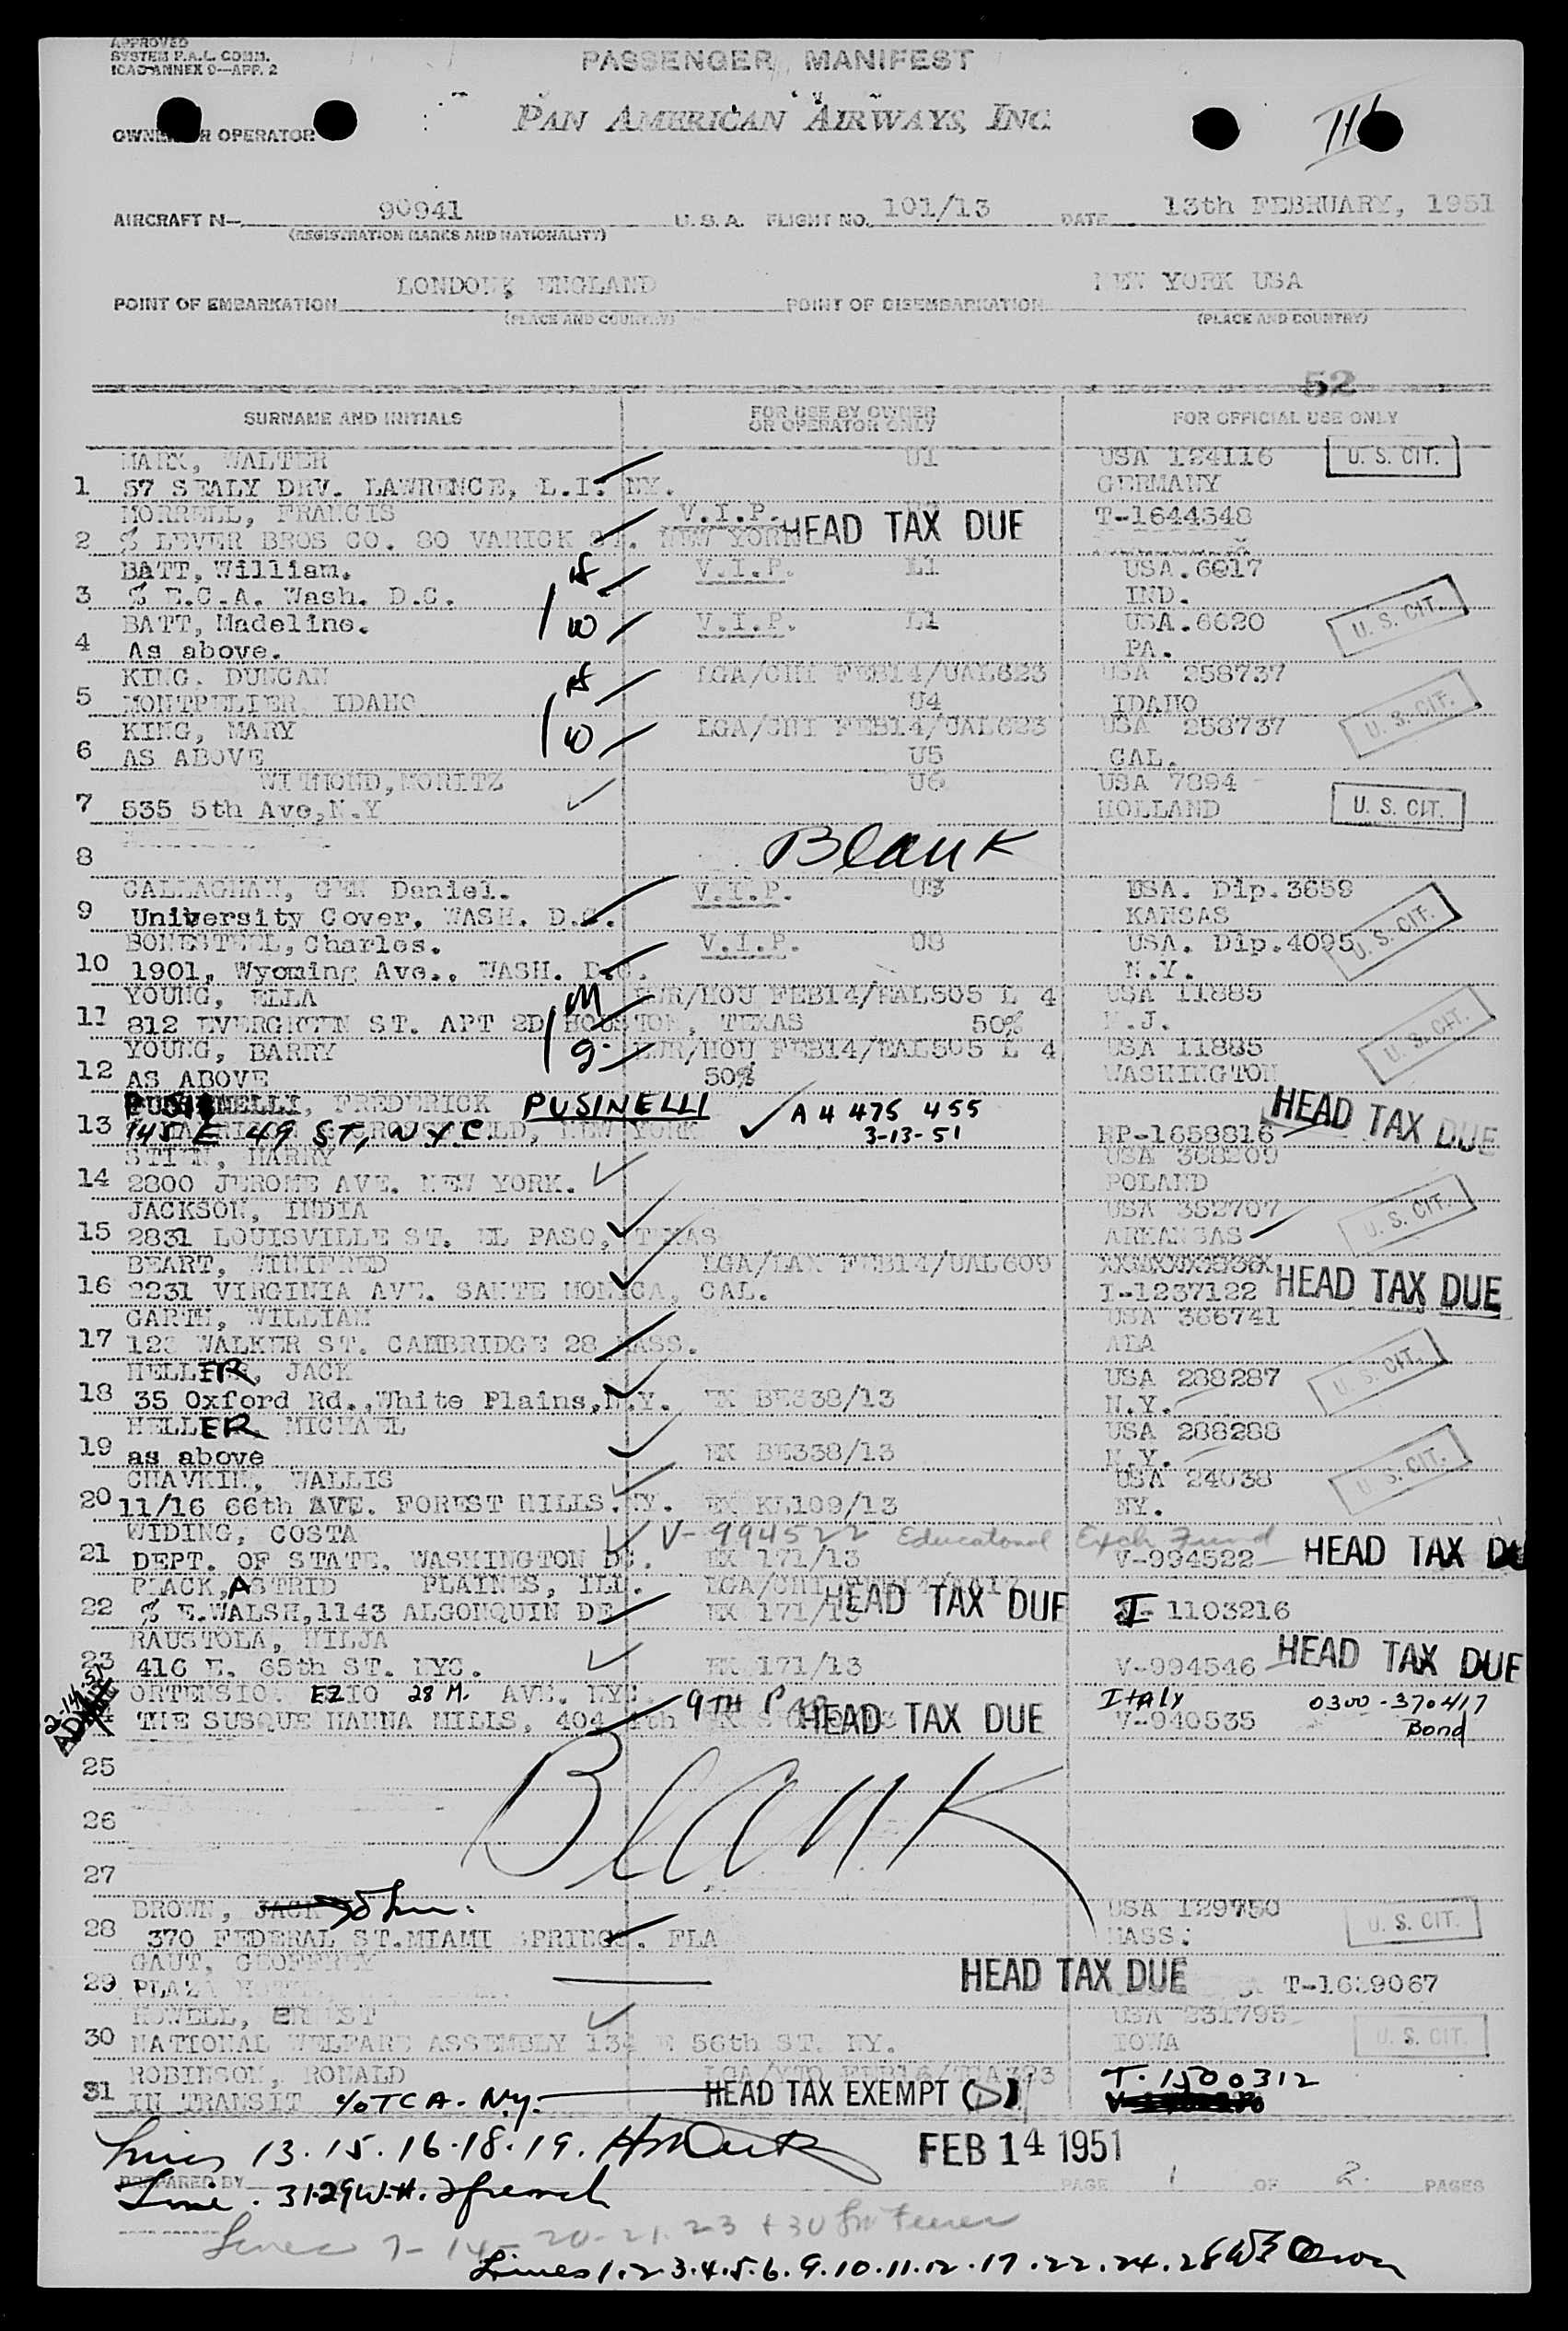 APPROVED
SYSTEM P.A.L. COMM.
ICAO ANNEX 9—APP. 2
PASSENGER MANIFEST
OWNER OR OPERATOR
PAN AMERICAN AIRWAYS, INC
AIRCRAFT N— 90941 U. S. A. FLIGHT NO. 101/13 DATE 13th FEBRUARY, 1951
(REGISTRATION MARKS AND NATIONALITY)
POINT OF EMBARKATION LONDON, ENGLAND POINT OF DISEMBARKATION NEW YORK USA
(PLACE AND COUNTRY) (PLACE AND COUNTRY)
52
SURNAME AND INITIALS FOR USE BY OWNER OR OPERATOR ONLY FOR OFFICIAL USE ONLY
WALTER U1 USA 124116 U. S. CIT.
1 57 SEALY DRV. LAWRENCE, L.I. NY. GERMANY
MORRELL, FRANCIS V.I.P. HEAD TAX DUE T-1644348
2 % LEVER BROS CO. 80 VARICK ST. NEW YORK
BATT, William. V.I.P. L1 USA.6017
3 % E.C.A. Wash. D.C. IND.
BATT, Madeline. W V.I.P. L1 USA.6620 U. S. CIT.
4 As above. PA.
KING, DUNCAN LGA/CHI FEB14/UAL623 USA 258737
5 MONTPELIER, IDAHO U4 IDAHO U. S. CIT.
KING, MARY W LGA/CHI FEB14/UAL623 USA 258737
6 AS ABOVE U5 CAL.
WITMOND, MORITZ U6 USA 7894
7 535 5th Ave, N.Y HOLLAND U. S. CIT.
8 Blank
CALLAGHAN, GEN Daniel. V.I.P. U3 USA. Dip.3659
9 University Cover. WASH. D.C. KANSAS U. S. CIT.
BONESTEEL, Charles. V.I.P. U8 USA. Dip.4095
10 1901, Wyoming Ave., WASH. D.C. N.Y.
YOUNG, ELLA M EWR/HOU FEB14/EAL505 L 4 USA 11885
11 812 EVERGREEN ST. APT 2D HOUSTON, TEXAS 50% N.J. U. S. CIT.
YOUNG, BARRY EWR/HOU FEB14/EAL505 L 4 USA 11885
12 AS ABOVE 50% WASHINGTON
FREDERICK PUSINELLI A 4 475 455 HEAD TAX DUE
13 145 E 49 ST, NYC. 3-13-51 RP-1658816
HARRY USA 368209
14 2800 JEROME AVE. NEW YORK. POLAND
JACKSON, INDIA USA 352707
15 2831 LOUISVILLE ST. EL PASO, TEXAS ARKANSAS U. S. CIT.
BEART, WINIFRED LGA/LAX FEB14/UAL609
16 2231 VIRGINIA AVE. SANTE MONICA, CAL. I-1237122 HEAD TAX DUE
GARTH, WILLIAM USA 366741
17 123 WALKER ST. CAMBRIDGE 28 MASS. ALA
HELLER, JACK USA 288287 U. S. CIT.
18 35 Oxford Rd., White Plains, N.Y. EX BE338/13 N.Y.
HELLER, MICHAEL USA 288288
19 as above EX BE338/13 N.Y.
CHAVKIN, WALLIS USA 24038 U. S. CIT.
20 11/16 66th AVE. FOREST HILLS. NY. EX KL109/13 NY.
WIDING, COSTA V-994522 Educational Exch Fund
21 DEPT. OF STATE, WASHINGTON DC. EX 171/13 V-994522 HEAD TAX DU
PLACK, ASTRID PLAINES, ILL. HEAD TAX DUE
22 % E.WALSH, 1143 ALGONQUIN DE EX 171/13 I- 1103216
RAUSTOLA, HILJA HEAD TAX DUE
23 416 E. 65th ST. NYC. EX 171/13 V-994546
ORTENSIO. EZIO 28 M. AVE. NYC. 9TH Italy 0300-370417
2-14-51 THE SUSQUEHANNA MILLS, 404 4th HEAD TAX DUE V-940535 Bond
25
26 Blank
27
BROWN, JACK John. USA 129750
28 370 FEDERAL ST. MIAMI SPRINGS. FLA MASS. U. S. CIT.
GAUT, GEOFFREY HEAD TAX DUE
29 PLAZA T-1629067
HOWELL, ERNEST USA 231795
30 NATIONAL WELFARE ASSEMBLY 134 E 56th ST. NY. IOWA U. S. CIT.
ROBINSON, RONALD LGA/YTO FEB16/TCA323 T-1500312
31 IN TRANSIT c/o TCA. N.Y. HEAD TAX EXEMPT (D)
Lines 13.15.16.18.19. FEB 14 1951
PREPARED BY PAGE 1 OF 2. PAGES
Line. 31-29 W.H.
Lines 7-14-20-21-23 + 30
Lines 1.2.3.4.5.6.9.10.11.12.17.22.24.28